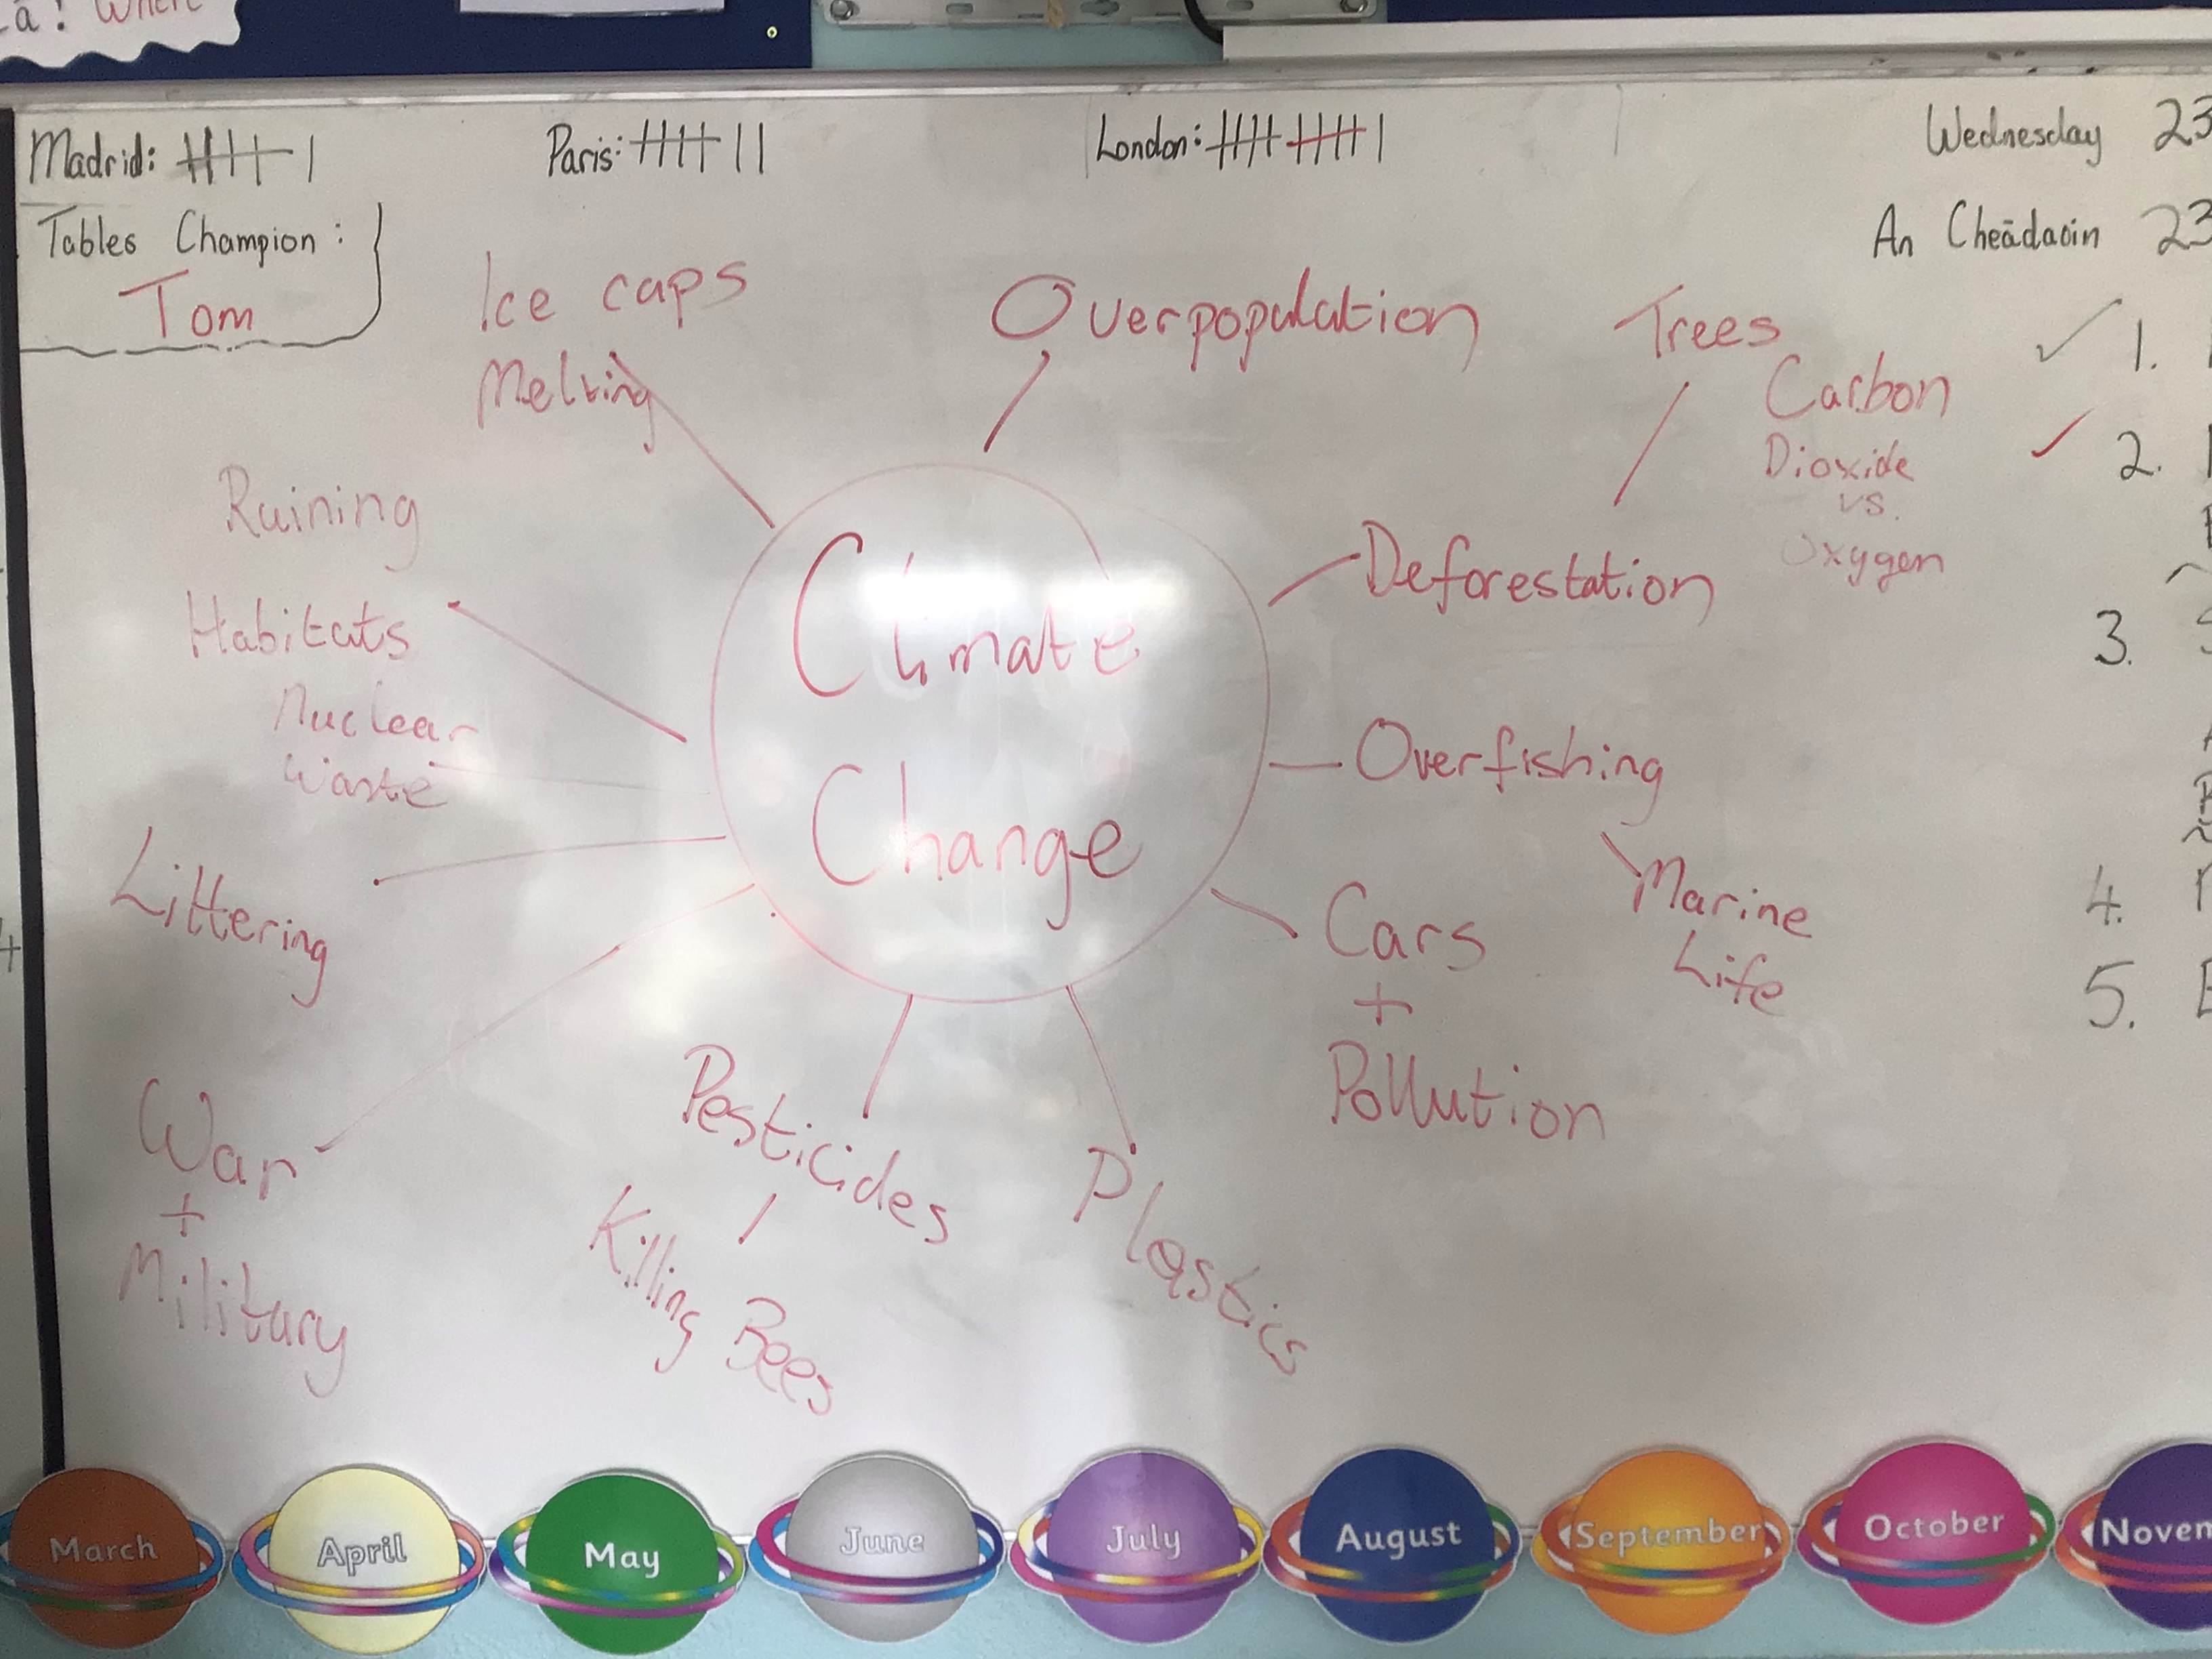 Madrid: 卌 |
Paris: 卌 ||
London: 卌 卌 |
Wednesday 23
An Cheādaoin 23
Tables Champion:
Tom
Ice caps
Melting
Overpopulation
Trees
Carbon
Dioxide
vs.
Oxygen
Ruining
Habitats
Nuclear
Waste
Littering
War
+
Military
Climate
Change
Deforestation
Overfishing
Marine
Life
Cars
+
Pollution
Pesticides
Killing Bees
Plastics
1.
2.
3.
4.
5.
March
April
May
June
July
August
September
October
Novem